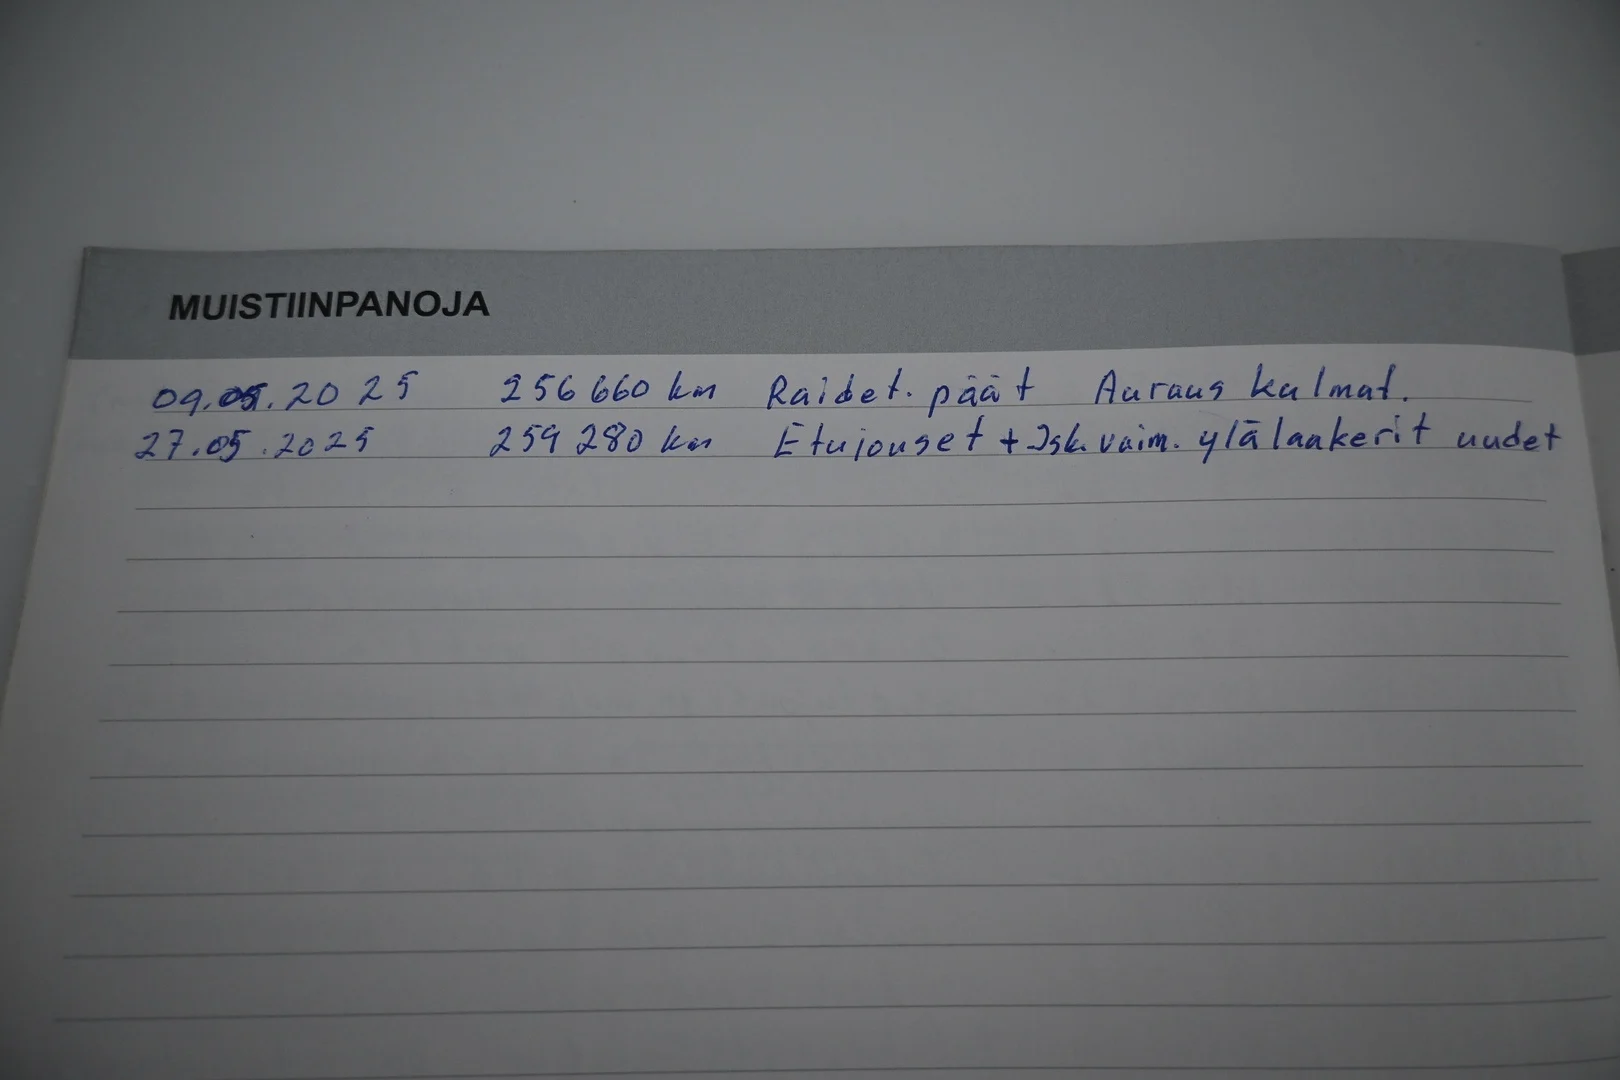 MUISTIINPANOJA
09.05.2025 256 660 km Raidet. päät Auraus kulmat.
27.05.2025 259 280 km Etujouset + Isk. vaim. ylälaakerit uudet